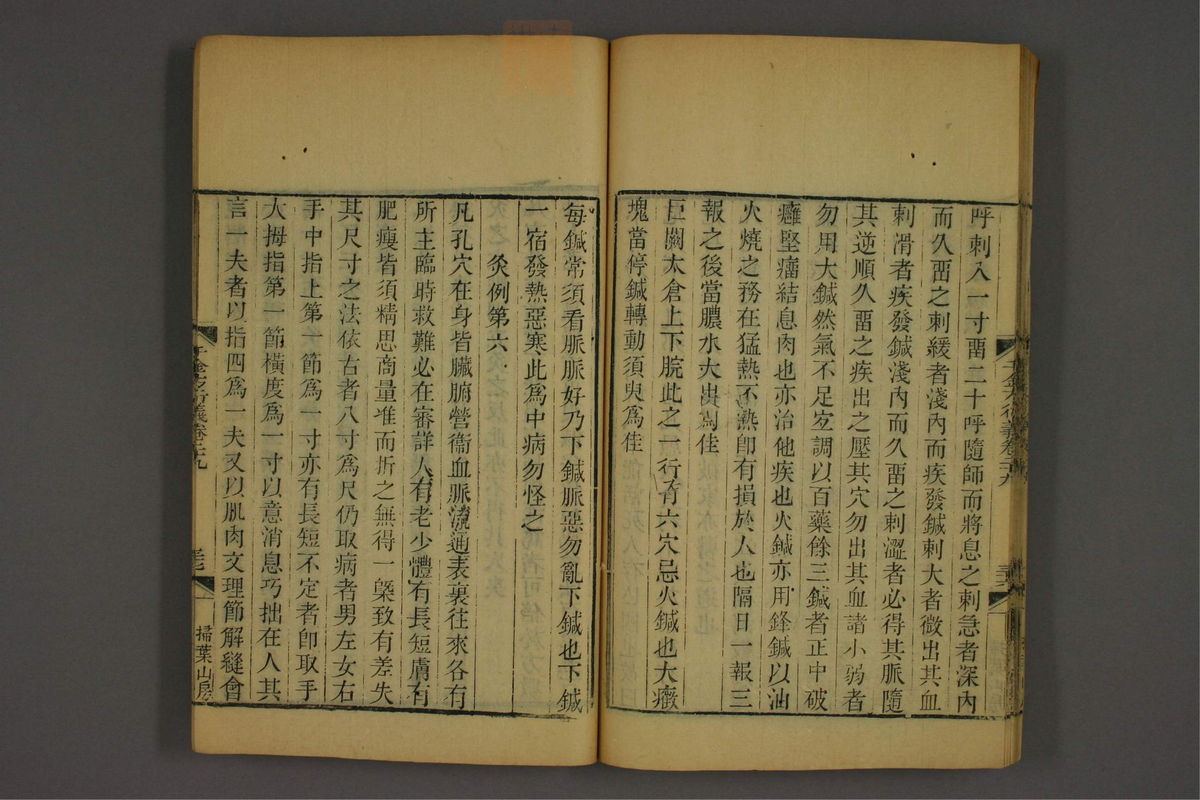 呼刺入一寸畱二十呼隨師而將息之刺急者深內
而久畱之刺緩者淺內而疾發鍼刺大者微出其血
刺滑者疾發鍼淺內而久畱之刺澀者必得其脈隨
其逆順久畱之疾出之壓其穴勿出其血諸小弱者
勿用大鍼然氣不足宜調以百藥餘三鍼者正中破
癰堅瘤結息肉也亦治他疾也火鍼亦用鋒鍼以油
火燒之務在猛熱不熱卽有損於人也隔日一報三
報之後當膿水大出爲佳
巨闕太倉上下脘此之一行有六穴忌火鍼也大癥
塊當停鍼轉動須臾爲佳
每鍼常須看脈脈好乃下鍼脈惡勿亂下鍼也下鍼
一宿發熱惡寒此爲中病勿怪之
灸例第六
凡孔穴在身皆臟腑營衞血脈流通表裏往來各有
所主臨時救難必在審詳人有老少體有長短膚有
肥瘦皆須精思商量准而折之無得一槩致有差失
其尺寸之法依古者八寸爲尺仍取病者男左女右
手中指上第一節爲一寸亦有長短不定者卽取手
大拇指第一節橫度爲一寸以意消息巧拙在人其
言一夫者以指四爲一夫又以肌肉文理節解縫會
千金方衍義卷二十九
掃葉山房